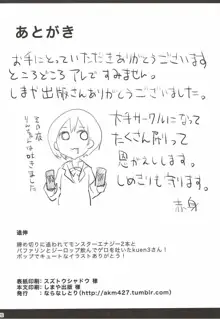 あとがき
お手にとっていただきありがとうございます
ところどころアレですみません。
しまや出版さんありがとうございました。
大手サークルになって
たくさん刷って
恩かえします。
しめきりも守ります。
赤身
追伸
締め切りに追われてモンスターエナジー2本と
バファリンとジーロップ飲んでゲロを吐いたkuen3さん!
ポップでキュートなイラストありがとう!
表紙印刷:スズトウシャドウ 様
本文印刷:しまや出版 様
発行:ならなしとり(http://akm427.tumblr.com)